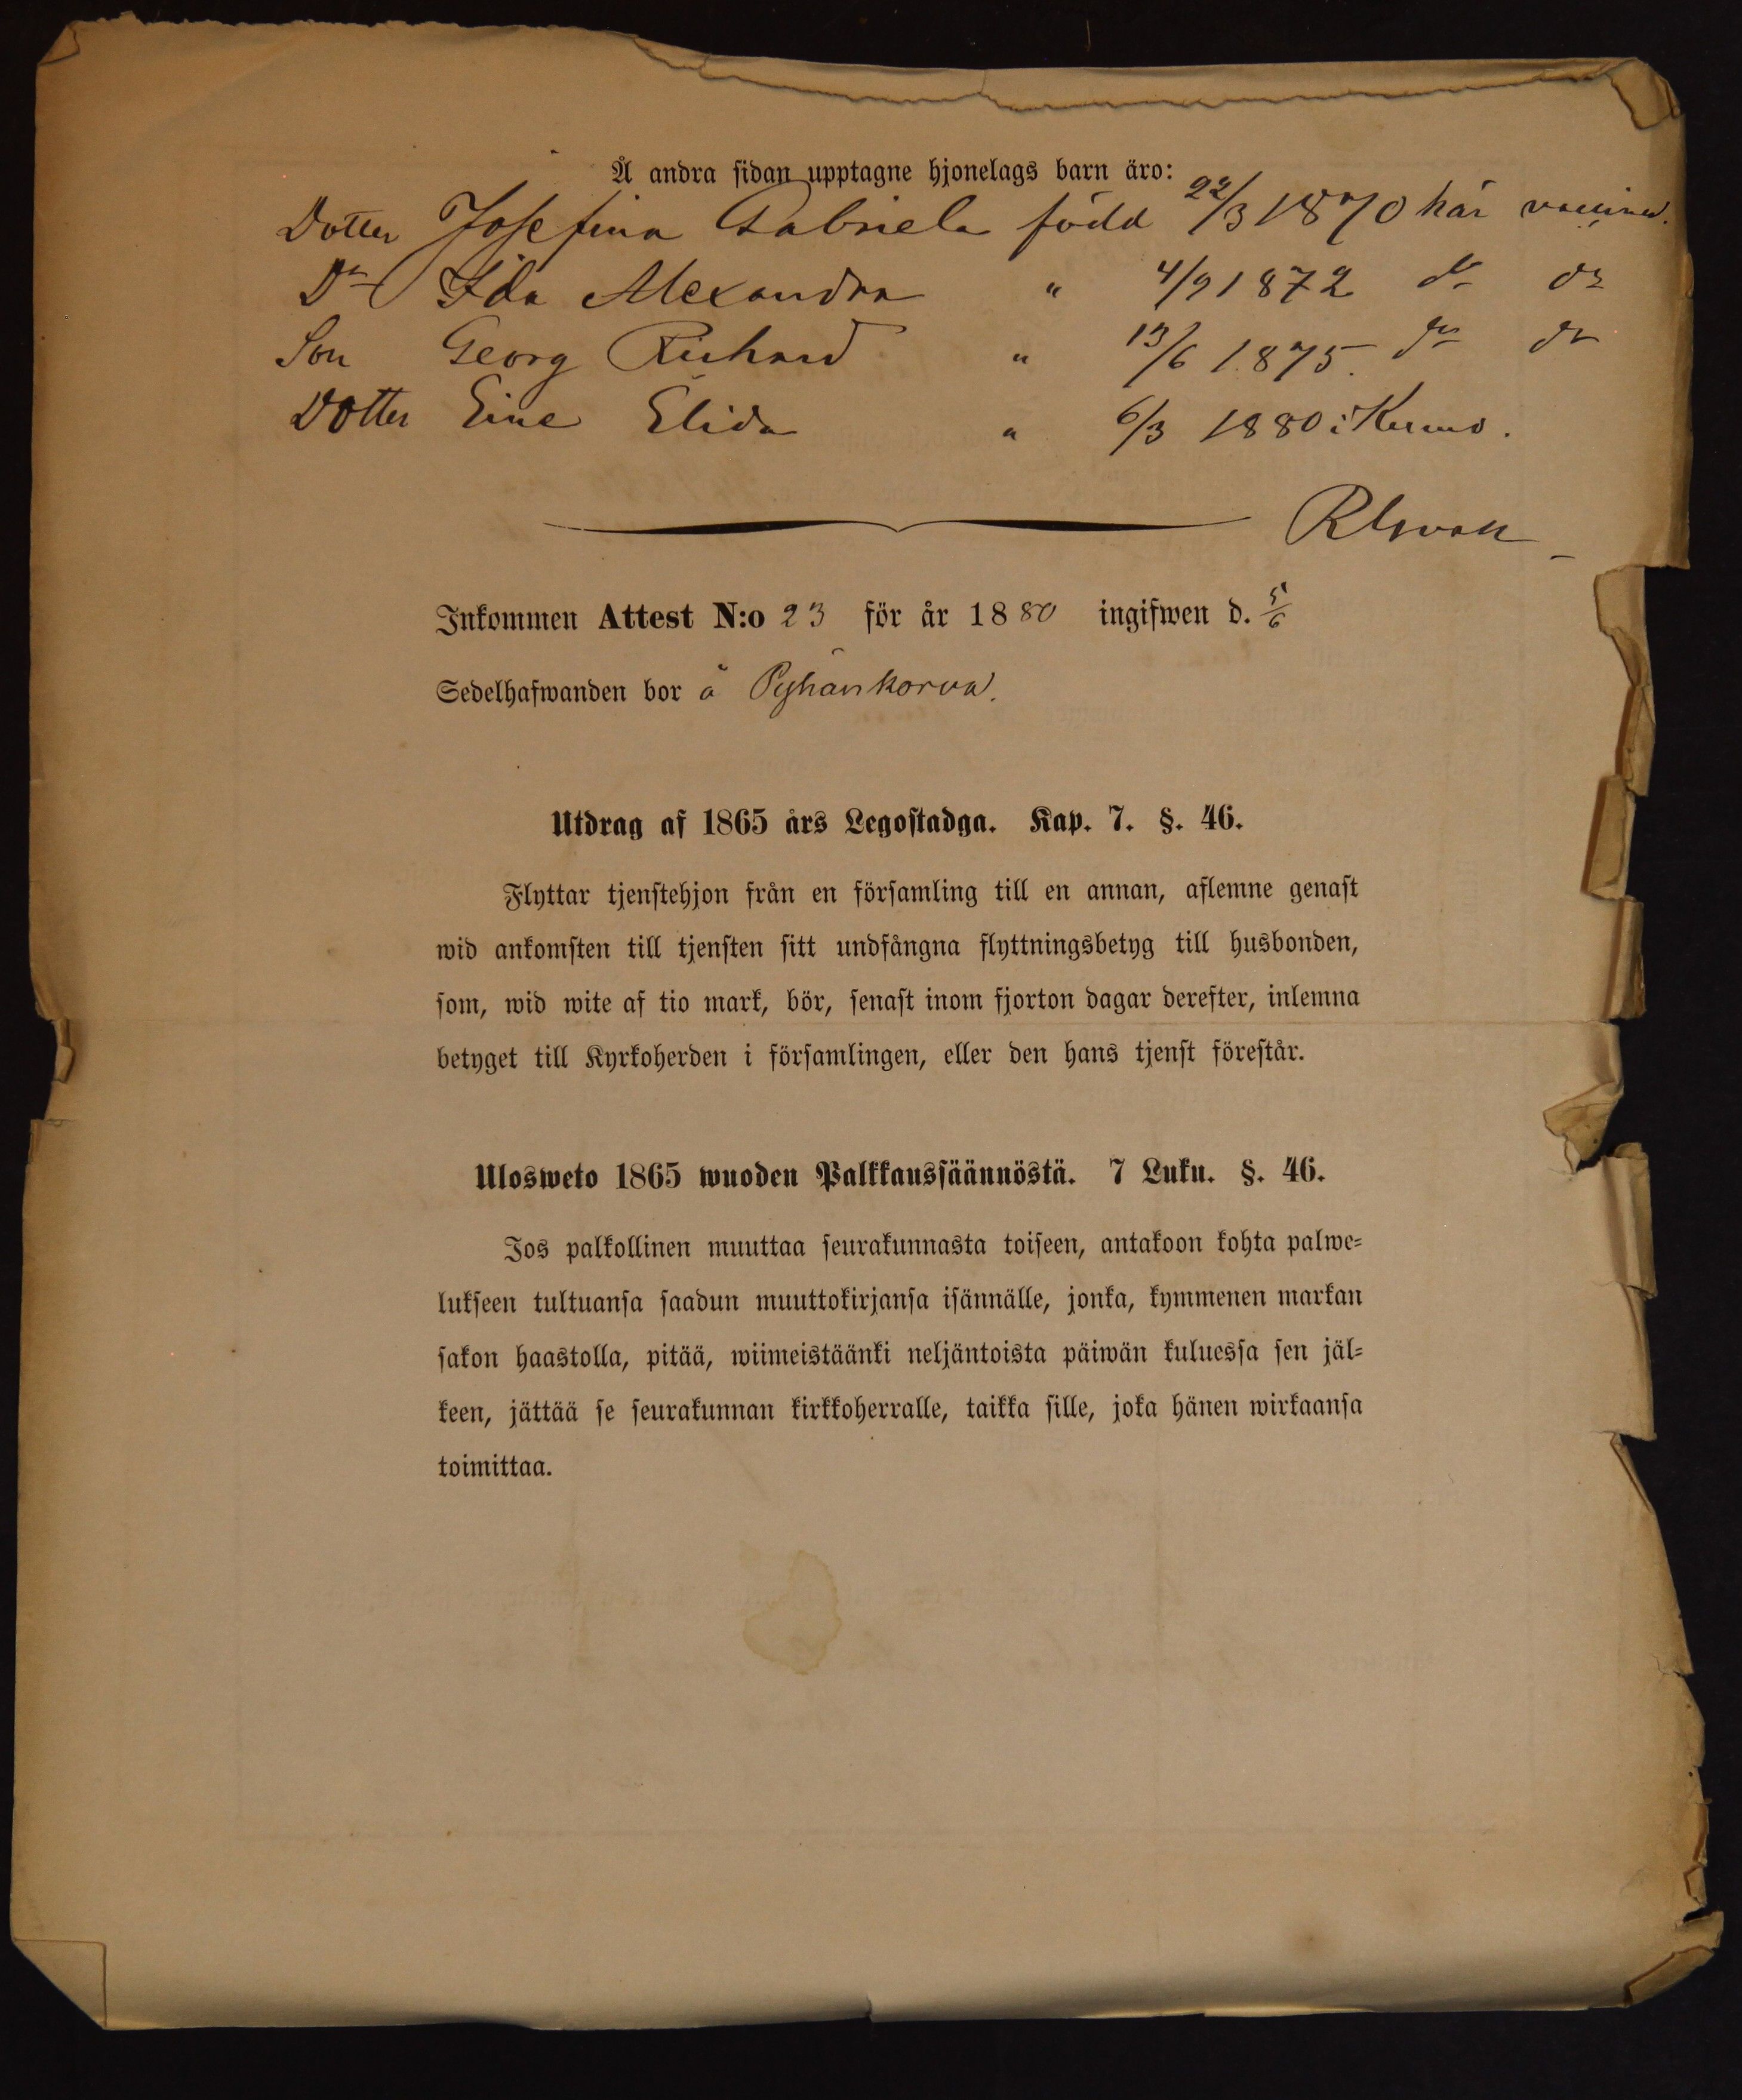 Å andra sidan upptagne hjonelags barn äro:
Dotter Josefina Gabriela född 22/3 1870 här vaccined.
Dr Ida Alexandra " 4/9 1872 dr dr
Son Georg Richard " 13/6 1875. dr dr
Dotter Eine Elida " 6/3 1880 i Kumo.
Inkommen Attest N:o 23 för år 1880 ingifwen d. 5/6
Sedelhafwanden bor å Pyhänkorva.
Utdrag af 1865 års Legostadga. Kap. 7. §. 46.
Flyttar tjenstehjon från en församling till en annan, aflemne genast
wid ankomsten till tjensten sitt undfångna flyttningsbetyg till husbonden,
som, wid wite af tio mark, bör, senast inom fjorton dagar derefter, inlemna
betyget till Kyrkoherden i församlingen, eller den hans tjenst förestår.
Ulosweto 1865 wuoden Palkkaussäännöstä. 7 Luku. §. 46.
Jos palkollinen muuttaa seurakunnasta toiseen, antakoon kohta palwe=
lukseen tultuansa saadun muuttokirjansa isännälle, jonka, kymmenen markan
sakon haastolla, pitää, wiimeistäänki neljäntoista päiwän kuluessa sen jäl=
keen, jättää se seurakunnan kirkkoherralle, taikka sille, joka hänen wirkaansa
toimittaa.